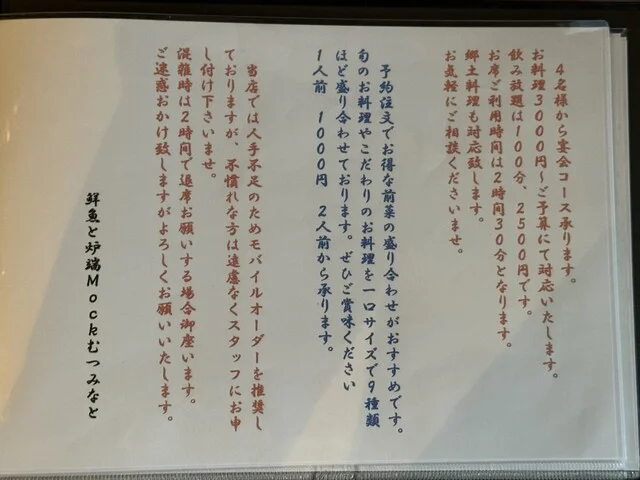 ４名様から宴会コース承ります。
お料理３０００円～ご予算にて対応いたします。
飲み放題は１００分、２５００円です。
お席ご利用時間は２時間３０分となります。
郷土料理も対応致します。
お気軽にご相談くださいませ。
予約注文でお得な前菜の盛り合わせがおすすめです。
旬のお料理やこだわりのお料理を一口サイズで９種類
ほど盛り合わせております。ぜひご賞味ください
１人前　１０００円　２人前から承ります。
当店では人手不足のためモバイルオーダーを推奨し
ておりますが、不慣れな方は遠慮なくスタッフにお申
し付け下さいませ。
混雑時は２時間で退席お願いする場合御座います。
ご迷惑おかけ致しますがよろしくお願いいたします。
鮮魚と炉端Ｍｏｃｋむつみなと